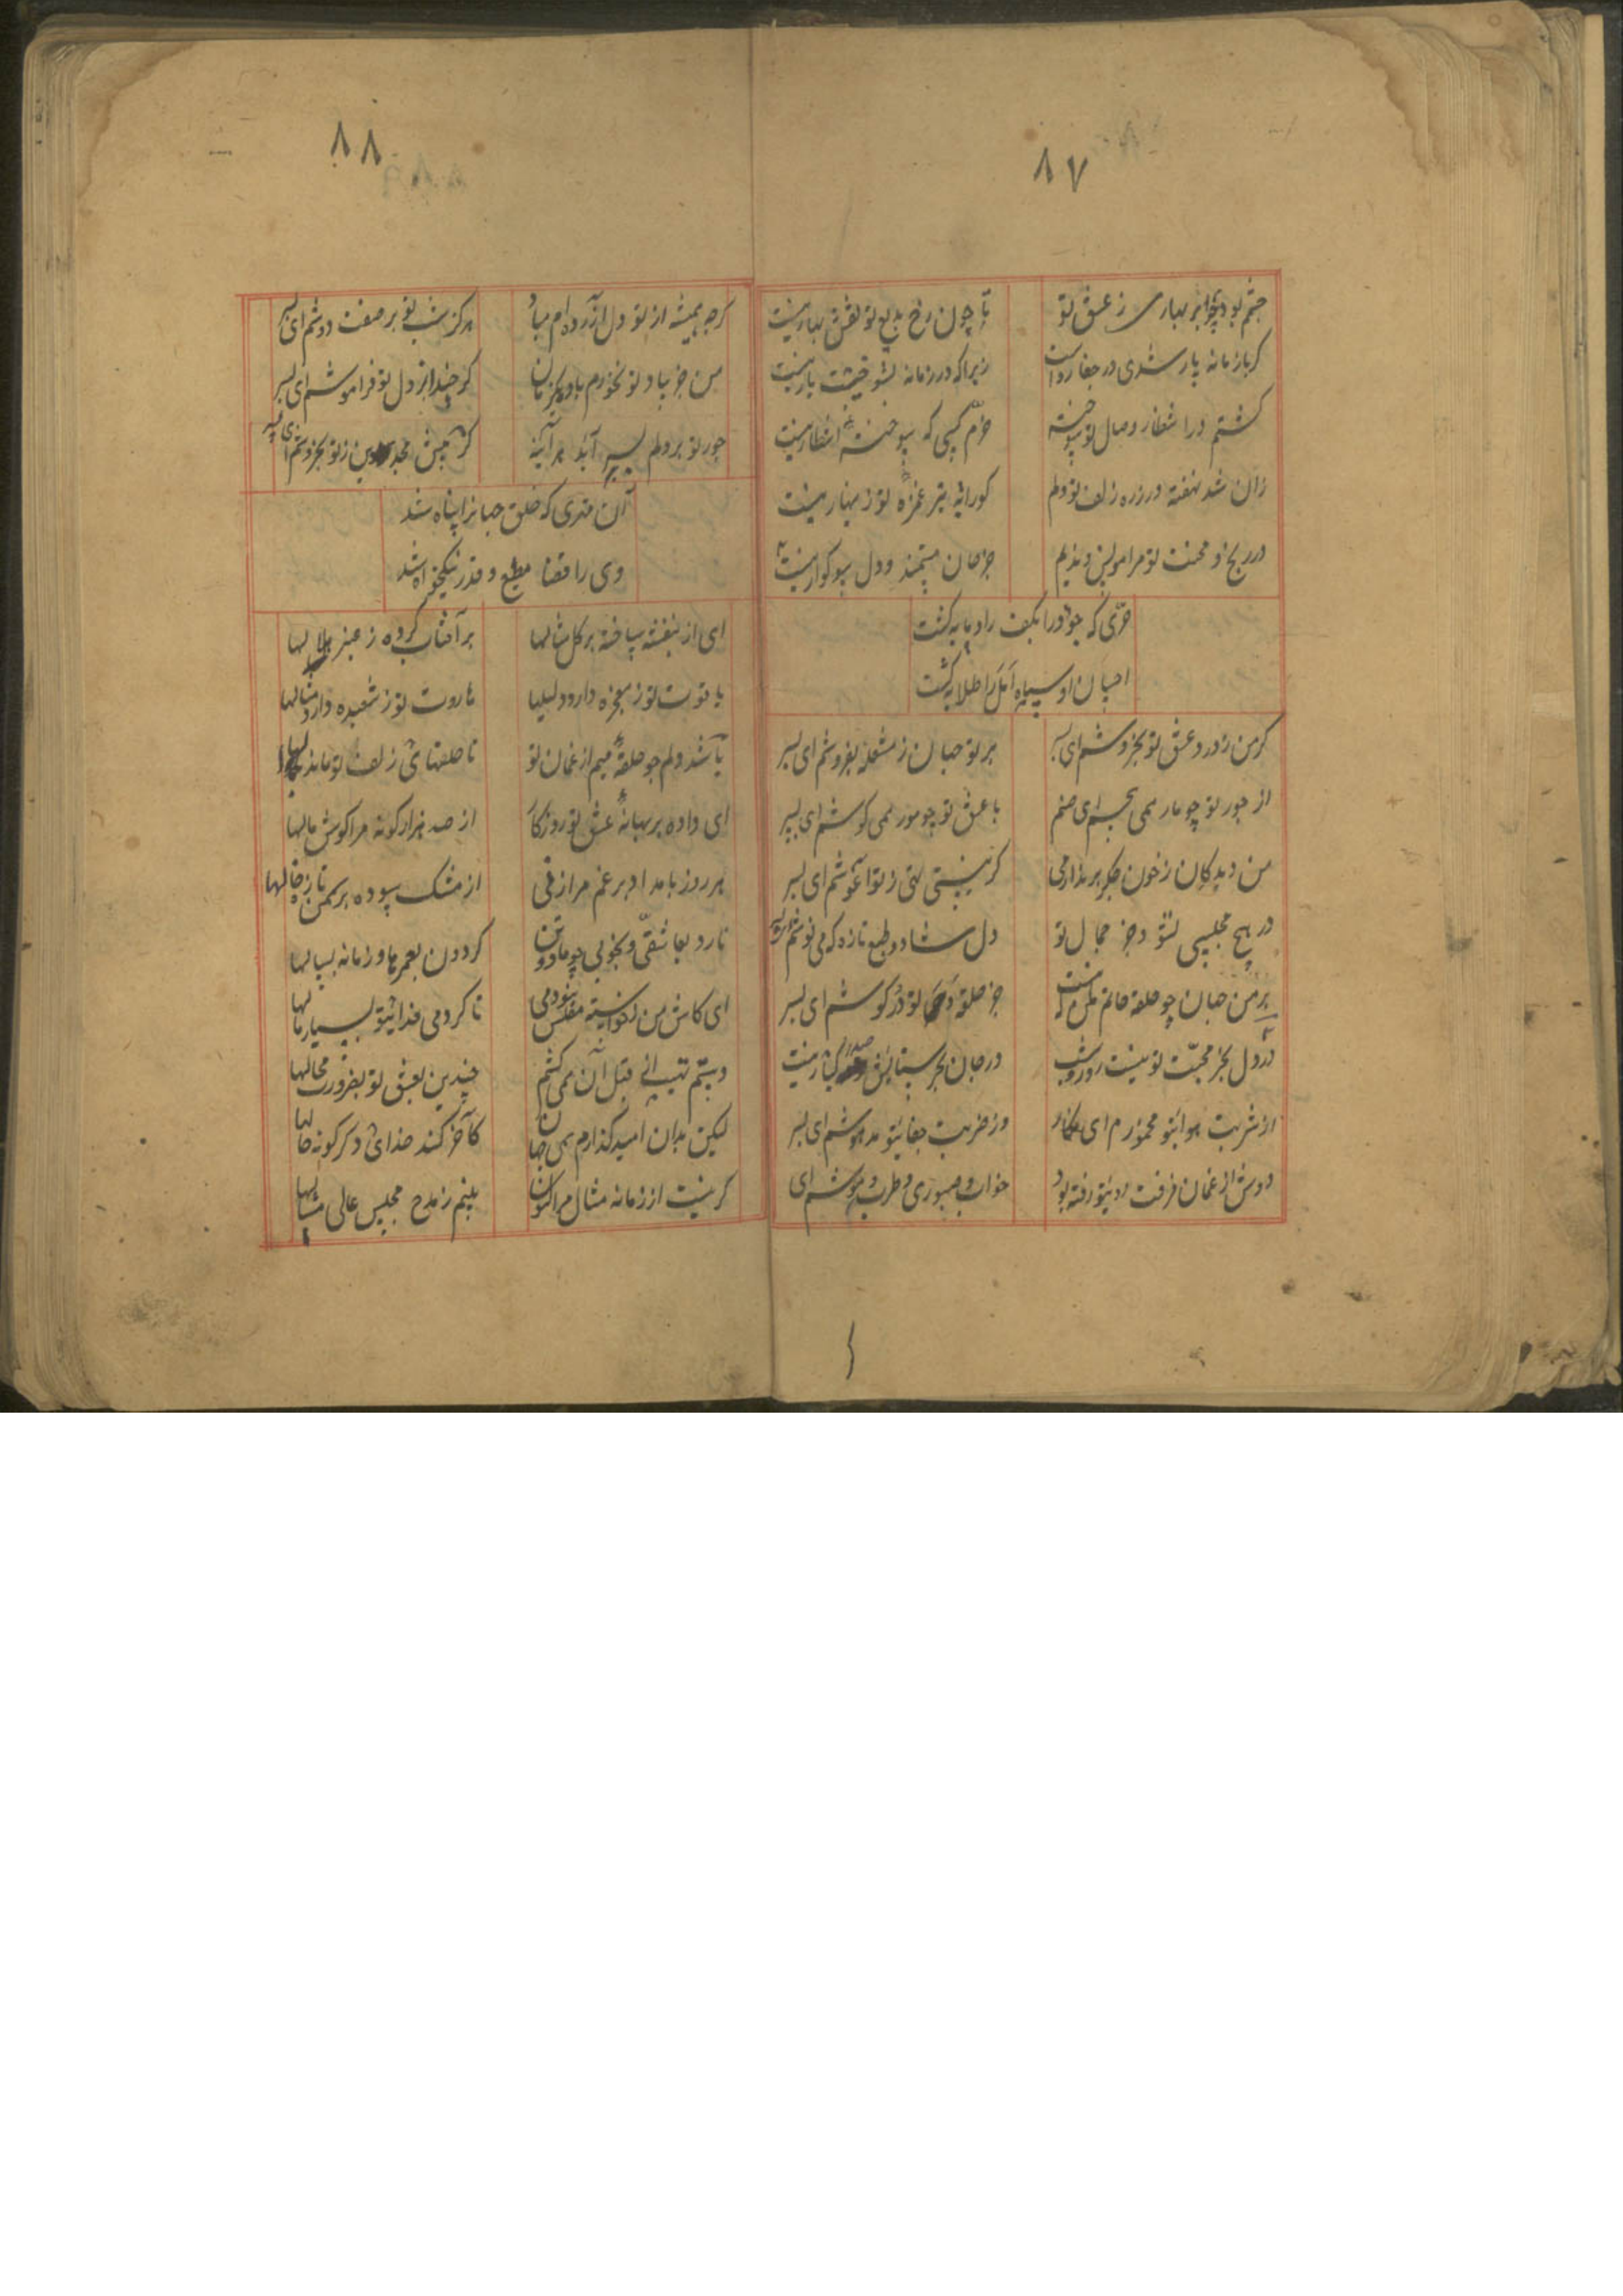 ۸۷
چشم بود چو ابر بهاری ز عشق تو
تا چون رخ بدیع تو نقش بهار نیست
کر با زمانه یار شدی در جفا رواست
زیرا که در زمانه بتو خویشت یار نیست
کشتم در انتظار وصال تو سوخته
خرم کسی که سوخته انتظار نیست
زان شد نهفته در زره زلف تو دلم
کورا به تیر غمزه تو زینهار نیست
در رنج و محنت تو مرا مونس و ندیم
جز جان مستمند و دل سوکوار نیست
حری که جود را بکف راد مایه کشت
احسان او سپاه امل را طلایه کشت
کر من ز درد عشق تو بخروشم ای پسر
بر تو جهان ز مشعله بفروشم ای پسر
از جور تو چو مار همی بجم ای صنم
با عشق تو چو مور همی کوشم ای پسر
من دیدکان ز خون جکر بر ندارمی
کر نیستی تهی ز تو آغوشم ای پسر
در هیچ مجلسی نشود جز جمال تو
دل شاد و طبع تازه که می نوشم ای پسر
بر من جهان چو حلقه خاتم مکن که نیست
جز حلقه تو در کوشم ای پسر
در دل بجز محبت تو نیست روز و شب
در جان بجز ستایش صدر کبار نیست
از شربت هوای تو مخمورم ای نکار
وز ضربت جفای تو مدهوشم ای پسر
دوش از غمان فرقت تو رفته بود
خواب و صبوری و طرب و هوشم ای
۸۸
کرچه همیشه از تو دل آزرده ام مباد
هرکز شبی تو بر صفت دوشم ای پسر
من جز بیاد تو نخورم باده هر زمان
کر چند از دل تو فراموشم ای پسر
جور تو بر دلم بسر آید هر آینه
کر پیش مجد دین ز تو بخروشم ای پسر
آن مهتری که خلق جهانرا پناه شد
وی را قضا مطیع و قدر نیکخواه شد
ای از بنفشه ساخته بر کل مثالها
بر آفتاب کرده ز عنبر هلالها
یاقوت تو ز معجزه دارد دلیلها
هاروت تو ز شعبده دارد مثالها
باشد دلم چو حلقه میم از غمان تو
تا حلقهای زلف تو ماند بدالها
ای داده بر بهانه عشق تو روزکار
از صد هزار کونه مرا کوش مالها
هر روز بامداد بر غم مرا زنی
از مشک سوده بر سمن تازه خالها
نارد بعاشقی و بخوبی چو ما دو تن
کردون بعمرها و زمانه بسالها
ای کاش من نکوئسته مفلس نبودمی
تا کردمی فدای تو بسیار مالها
دیدم تهیبائی قبل آن همی کشم
چندین بعشق تو بضرورت محالها
لیکن بدان امید کذارم همی جهان
کآخر کند خدای دکر کونه حالها
کر نیست از زمانه مثال مرا کنون
بینم ز مدح مجلس عالی مثالها